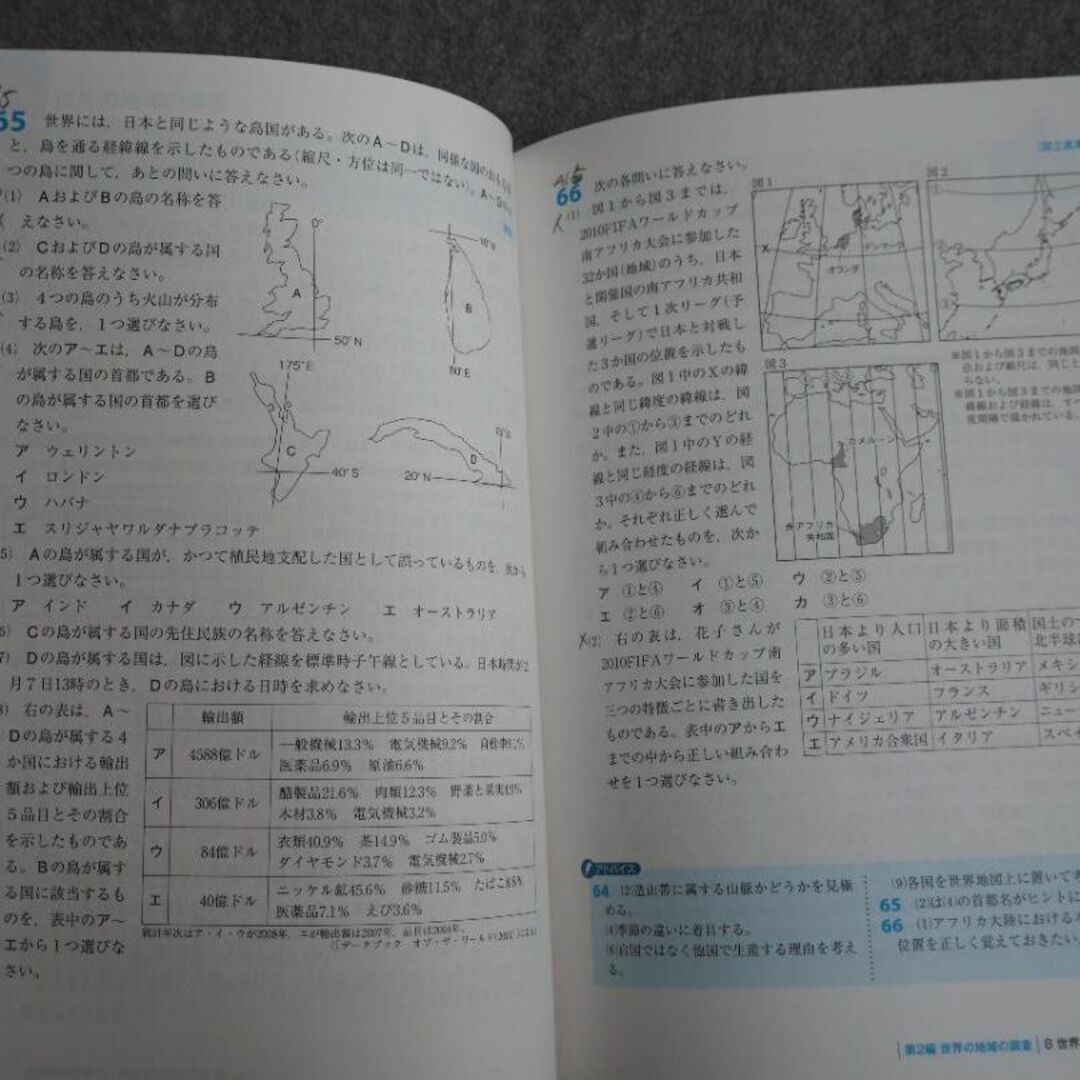 65 世界には，日本と同じような島国がある。次のA～Dは，同様な国のおもな島
と，島を通る経緯線を示したものである(縮尺・方位は同一ではない)。A～Dの4
つの島に関して，あとの問いに答えなさい。
(1) AおよびBの島の名称を答
えなさい。
(2) CおよびDの島が属する国
の名称を答えなさい。
(3) 4つの島のうち火山が分布
する島を，1つ選びなさい。
(4) 次のア～エは，A～Dの島
が属する国の首都である。B
の島が属する国の首都を選び
なさい。
ア ウェリントン
イ ロンドン
ウ ハバナ
エ スリジャヤワルダナプラコッテ
0°
A
50°N
10°N
B
80°E
175°E
C
40°S
D
20°N
75°W
5) Aの島が属する国が，かつて植民地支配した国として誤っているものを，次から
1つ選びなさい。
ア インド イ カナダ ウ アルゼンチン エ オーストラリア
6) Cの島が属する国の先住民族の名称を答えなさい。
7) Dの島が属する国は，図に示した経線を標準時子午線としている。日本時間が2
月7日13時のとき，Dの島における日時を求めなさい。
8) 右の表は，A～
Dの島が属する4
か国における輸出
額および輸出上位
5品目とその割合
を示したものであ
る。Bの島が属す
る国に該当するも
のを，表中のア～
エから1つ選びな
さい。
輸出額 輸出上位5品目とその割合
ア 4588億ドル 一般機械13.3% 電気機械9.2% 自動車8.2%
医薬品6.9% 原油6.6%
イ 306億ドル 酪製品21.6% 肉類12.3% 野菜と果実4.9%
木材3.8% 電気機械3.2%
ウ 84億ドル 衣類40.9% 茶14.9% ゴム製品5.0%
ダイヤモンド3.7% 電気機械2.7%
エ 40億ドル ニッケル鉱45.6% 砂糖11.5% たばこ8.8%
医薬品7.1% えび3.6%
統計年次はア・イ・ウが2008年，エが輸出額は2007年，品目は2004年。
66 次の各問いに答えなさい。
(1) 図1から図3までは，
2010FIFAワールドカップ
南アフリカ大会に参加した
32か国(地域)のうち，日本
と開催国の南アフリカ共和
国，そして1次リーグ(予
選リーグ)で日本と対戦し
た3か国の位置を示したも
のである。図1中のXの緯
線と同じ緯度の緯線は，図
2中の①から③までのどれ
か。また，図1中のYの経
線と同じ経度の経線は，図
3中の④から⑥までのどれ
か。それぞれ正しく選んで
組み合わせたものを，次か
ら1つ選びなさい。
ア ①と④ イ ①と⑤ ウ ②と⑤
エ ②と⑥ オ ③と④ カ ③と⑥
図1
X
デンマーク
オランダ
Y
図2
図3
カメルーン
南アフリカ
共和国
※図1から図3までの地図
法および縮尺は，同じと
らない。
※図1から図3までの地図
緯線および経線は，すべ
度間隔で描かれている。
(2) 右の表は，花子さんが
2010FIFAワールドカップ南
アフリカ大会に参加した国を
三つの特徴ごとに書き出した
ものである。表中のアからエ
までの中から正しい組み合わ
せを1つ選びなさい。
日本より人口 日本より面積 国土の
の多い国 の大きい国 北半球
ア ブラジル オーストラリア メキシ
イ ドイツ フランス ギリシ
ウ ナイジェリア アルゼンチン ニュー
エ アメリカ合衆国 イタリア スペイ
アドバイス
64 (2)造山帯に属する山脈かどうかを見極
める。
(4)季節の違いに着目する。
(6)自国ではなく他国で生産する理由を考え
る。
(9)各国を世界地図上に置いて考
65 (2)は(4)の首都名がヒントに
66 (1)アフリカ大陸における
位置を正しく覚えておきたい。
第2編 世界の地域の調査 8 世界